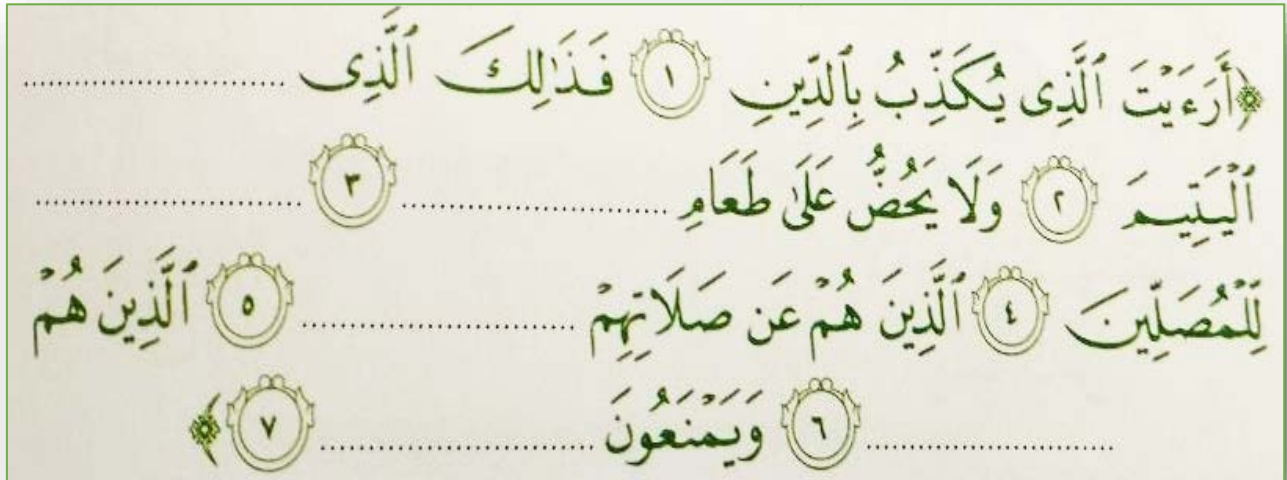 ﴿أَرَءَيْتَ ٱلَّذِى يُكَذِّبُ بِٱلدِّينِ ١ فَذَٰلِكَ ٱلَّذِى ....................
ٱلْيَتِيمَ ٢ وَلَا يَحُضُّ عَلَىٰ طَعَامِ .................... ٣ ....................
لِّلْمُصَلِّينَ ٤ ٱلَّذِينَ هُمْ عَن صَلَاتِهِمْ .................... ٥ ٱلَّذِينَ هُمْ
.................... ٦ وَيَمْنَعُونَ .................... ٧ ﴾